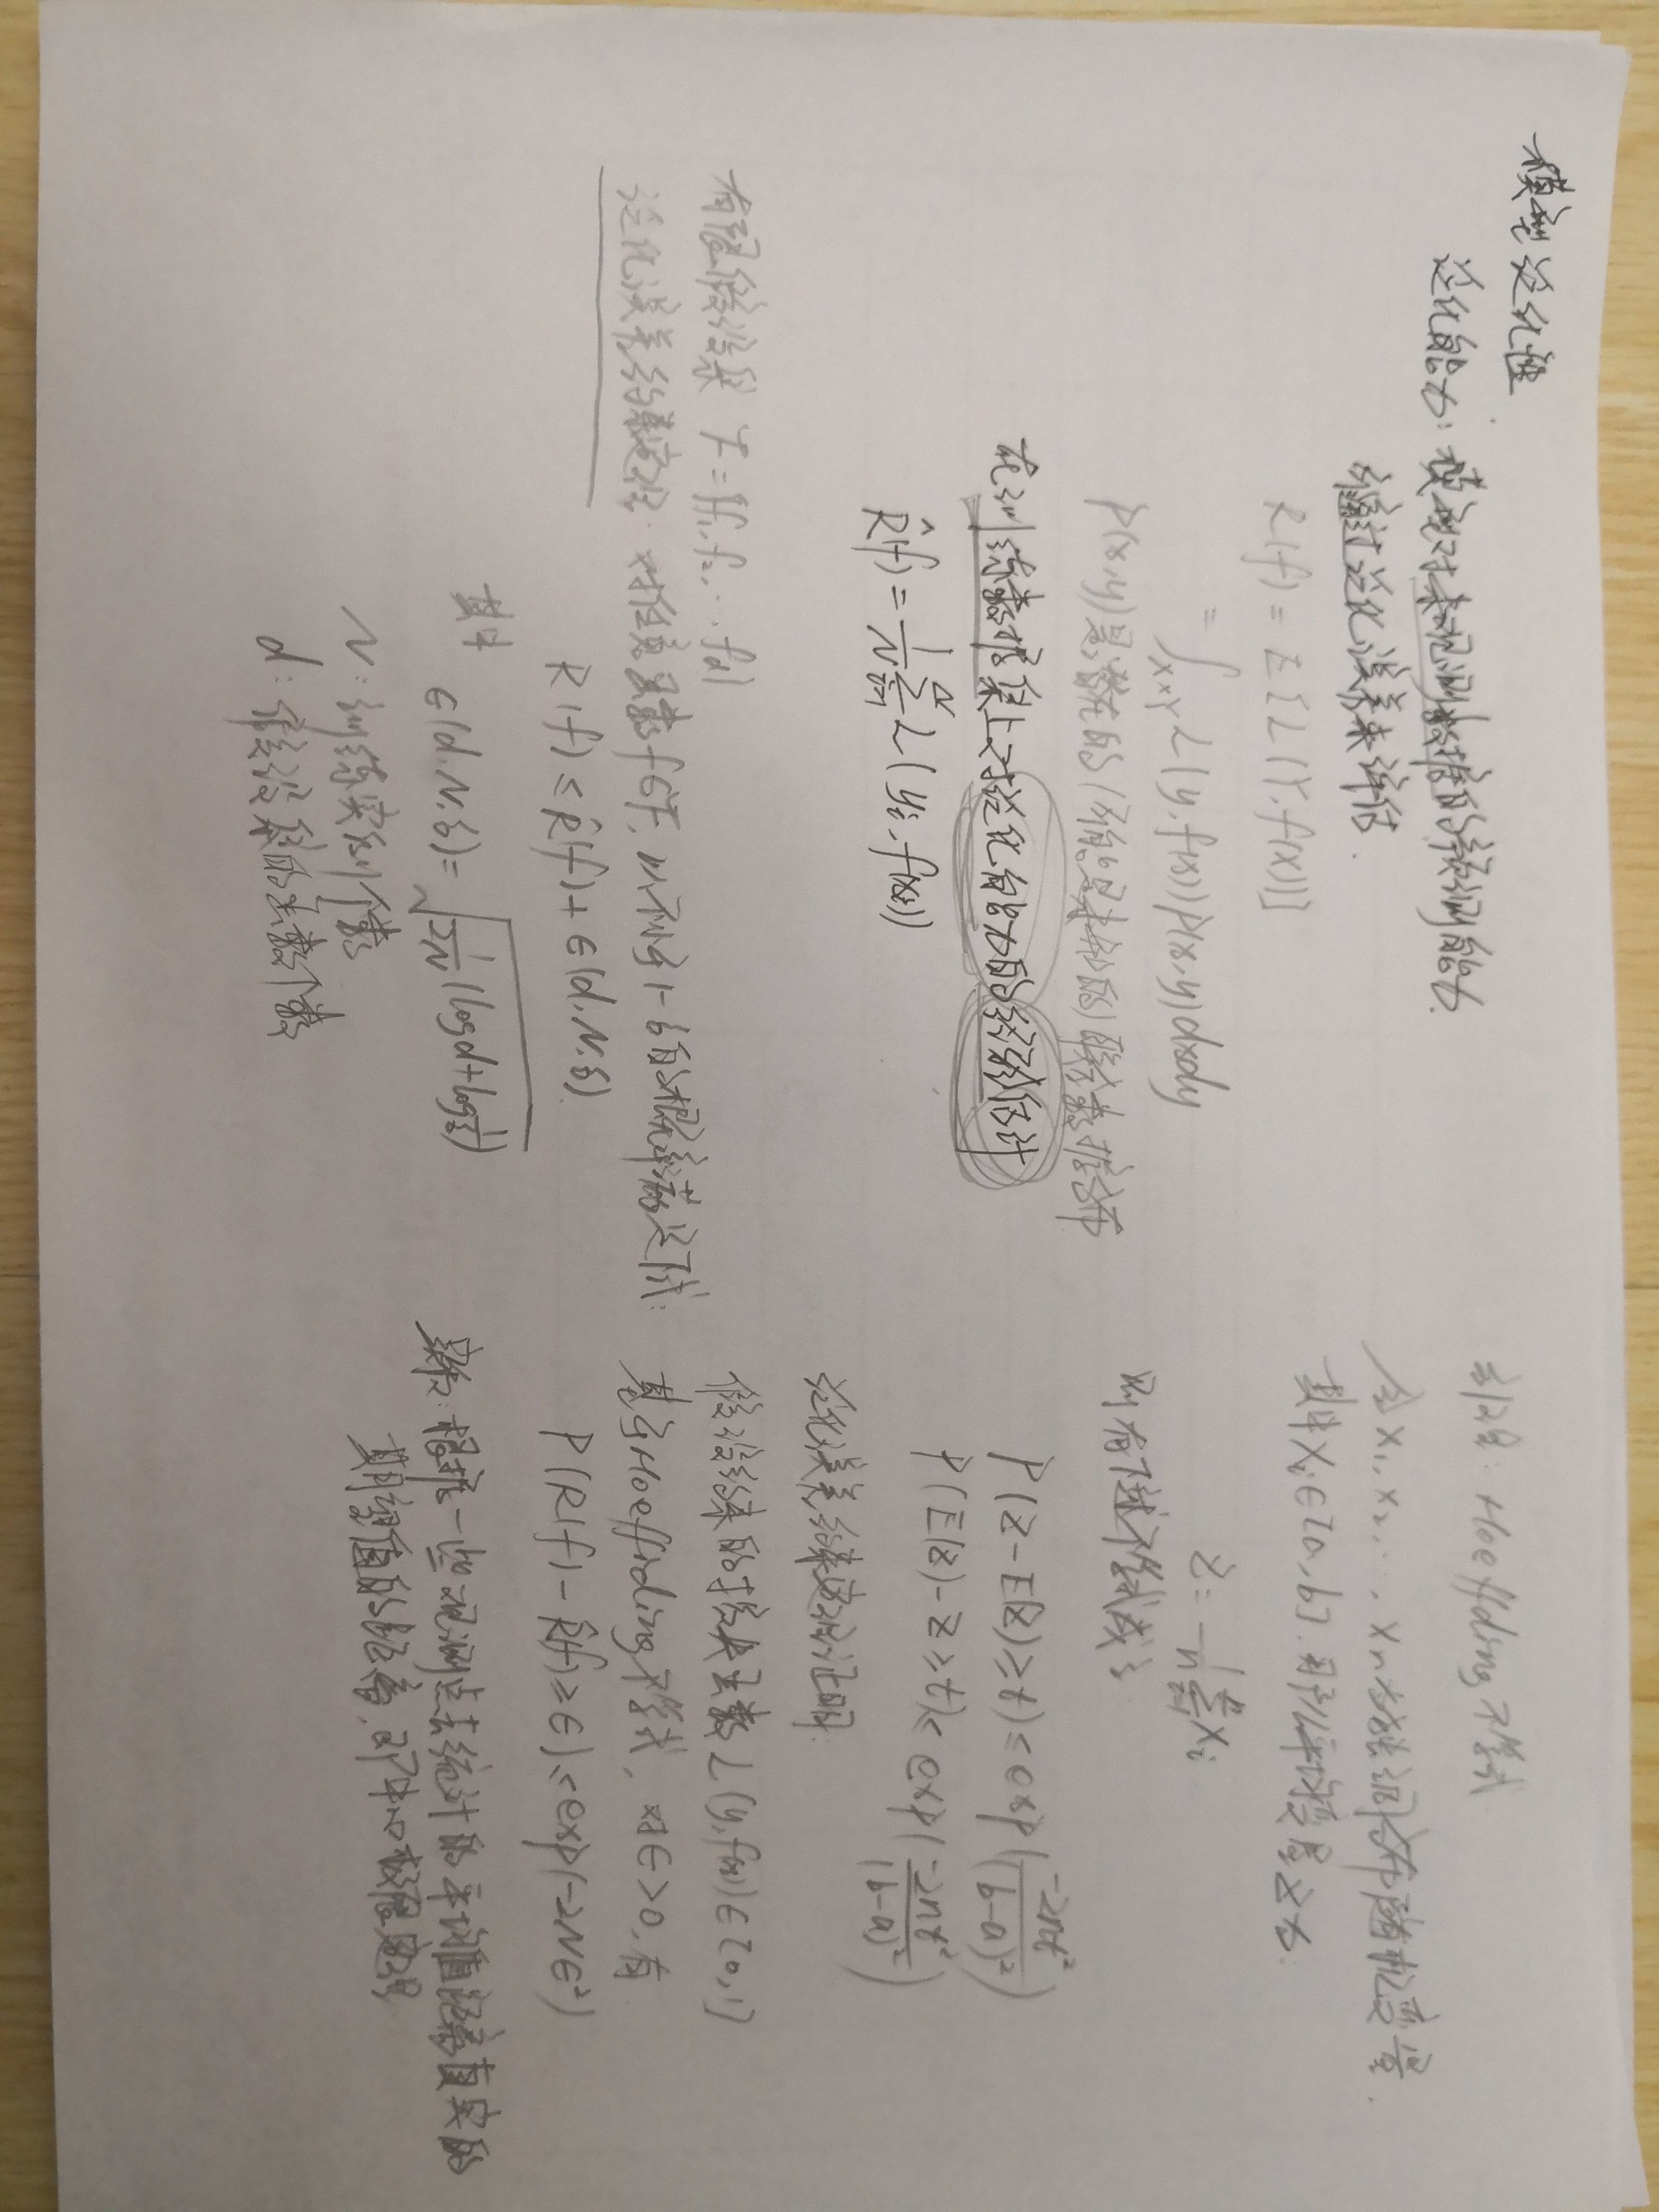 模型泛化性
泛化能力：模型对未观测数据的预测能力
通过泛化误差来评估.
R(f) = E[L(Y, f(X))]
= ∫_{X×Y} L(y, f(x)) p(x,y) dxdy
p(x,y)是潜在的(可能是未知的)联合数据分布
在训练数据集上对泛化能力的经验估计
R̂(f) = 1/N Σ_{i=1}^N L(yi, f(xi))
有限假设集 F = {f1, f2, ... fd}
泛化误差约束定理: 对任意函数f∈F, 以不小于1-δ的概率满足下式:
R(f) ≤ R̂(f) + ∈(d, N, δ).
其中
∈(d, N, δ) = √(1/2N (log d + log 1/δ))
N: 训练实例个数
d: 假设集的函数个数
引理: Hoeffding不等式
令 X1, X2, ..., Xn为独立同分布随机变量.
其中Xi∈[a, b].
Z = 1/n Σ_{i=1}^n Xi
则有下述不等式成立
P(Z - E(Z) ≥ t) ≤ exp(-2nt²/(b-a)²)
P(E(Z) - Z ≥ t) ≤ exp(-2nt²/(b-a)²)
泛化误差约束定理的证明:
假设 的损失函数 L(y, f(x)) ∈ [0, 1]
基于Hoeffding不等式, 对∈>0, 有
P(R(f) - R̂(f) ≥ ∈) ≤ exp(-2N∈²)
根据一些观测点去统计的平均值距离真实的
期望值的距离, 即中心极限定理